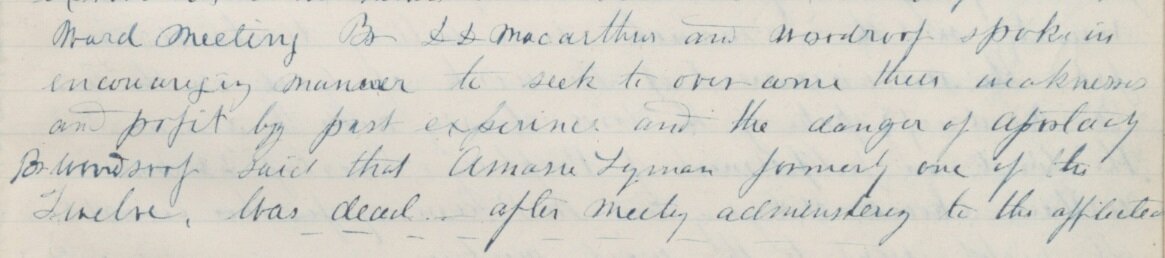 Ward Meeting Br D D Macarthur and Woodroof spoke in
encouuregieng manner to seek to over come their weaknesses
and pofit by past experince and the danger of Apostacy
Br Woodroof said that Amasie Lyman formerly one of the
Twelve, was dead... after Meetig adminsterey to the afflicted